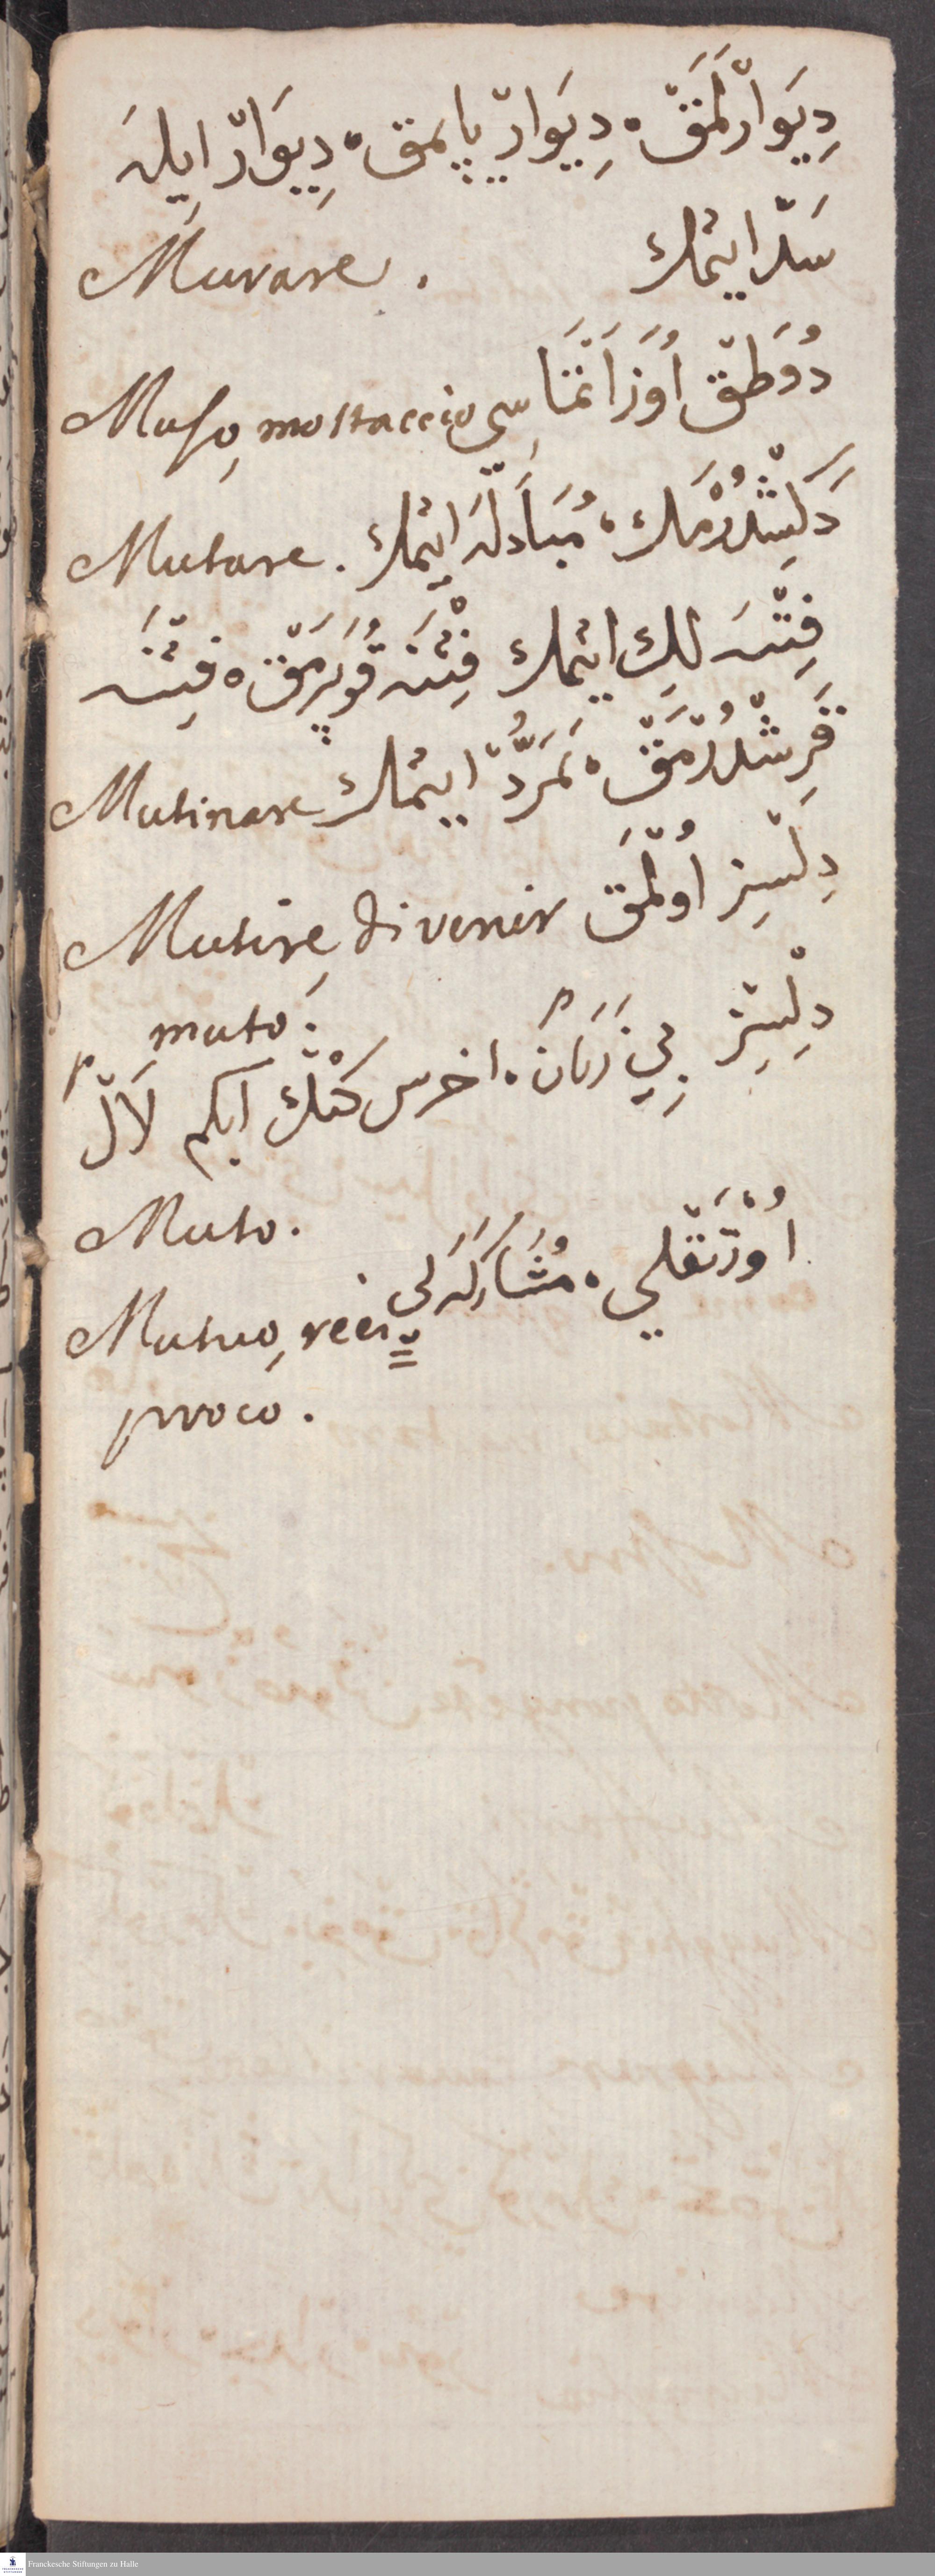 دِيَوارْلَمَقْ ، دِيَوارْ يَاپمَق ، دِيَوارْ ايلَه
سَدّ ايتْمك
Murare.
دُوَطقْ اُوزَ اَغْنَا سِي
Muso, mostaccio
دَكِشْدُرْمَك ، مُبَادَلَه ايتْمك
Mutare.
فِتْنَه لِك ايتْمك فِتْنَه قُوپَرمَقْ ، فِتْنَه
قَرِشْدُرْمَقْ ، تَمَرُّدْ ايتْمك
Mutinare
دِلْسِز اُولْمَقْ
Mutire, divenir
muto.
دِلْسِز بِي زَبَانْ ، اخرس كُنْك ابكم لاَلْ
Muto.
اُورْتَقْلِي ، مُشَارَكَه لِي
Mutuo, reci=
proco.
Franckesche Stiftungen zu Halle